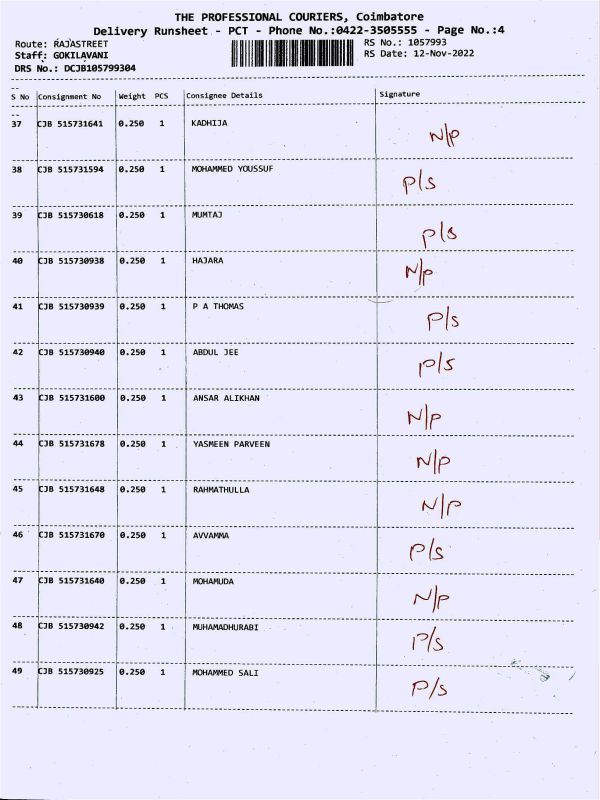 THE PROFESSIONAL COURIERS, Coimbatore
Delivery Runsheet - PCT - Phone No.:0422-3505555 - Page No.:4
Route: RAJASTREET RS No.: 1057993
Staff: GOKILAVANI RS Date: 12-Nov-2022
DRS No.: DCJB105799304
S No Consignment No Weight PCS Consignee Details Signature
37 CJB 515731641 0.250 1 KADHIJA N/P
38 CJB 515731594 0.250 1 MOHAMMED YOUSSUF P/S
39 CJB 515730618 0.250 1 MUMTAJ P/S
40 CJB 515730938 0.250 1 HAJARA N/P
41 CJB 515730939 0.250 1 P A THOMAS P/S
42 CJB 515730940 0.250 1 ABDUL JEE P/S
43 CJB 515731600 0.250 1 ANSAR ALIKHAN N/P
44 CJB 515731678 0.250 1 YASMEEN PARVEEN N/P
45 CJB 515731648 0.250 1 RAHMATHULLA N/P
46 CJB 515731670 0.250 1 AVVAMMA P/S
47 CJB 515731640 0.250 1 MOHAMUDA N/P
48 CJB 515730942 0.250 1 MUHAMADHURABI P/S
49 CJB 515730925 0.250 1 MOHAMMED SALI P/S